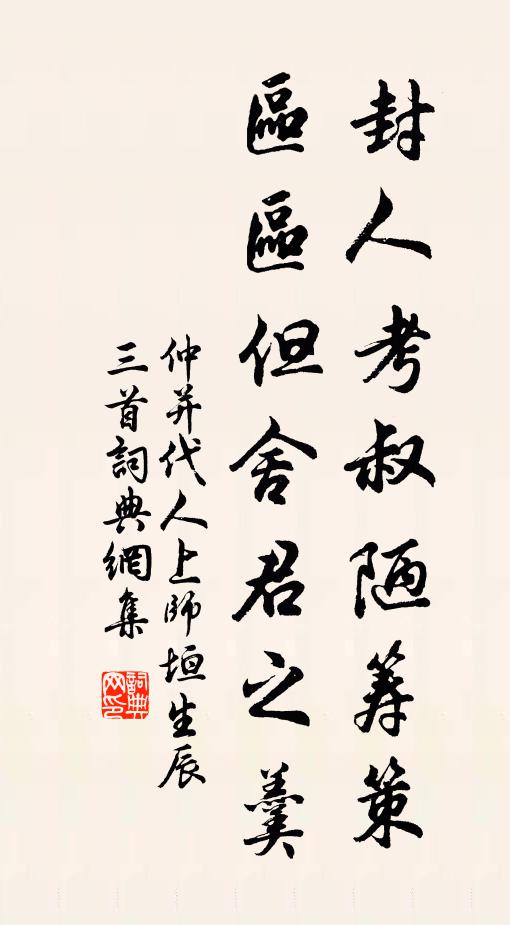 封人考叔陋筭策
區區但舍君之羹
仲并代人上師垣生辰
三首詞典網集
詞典网印